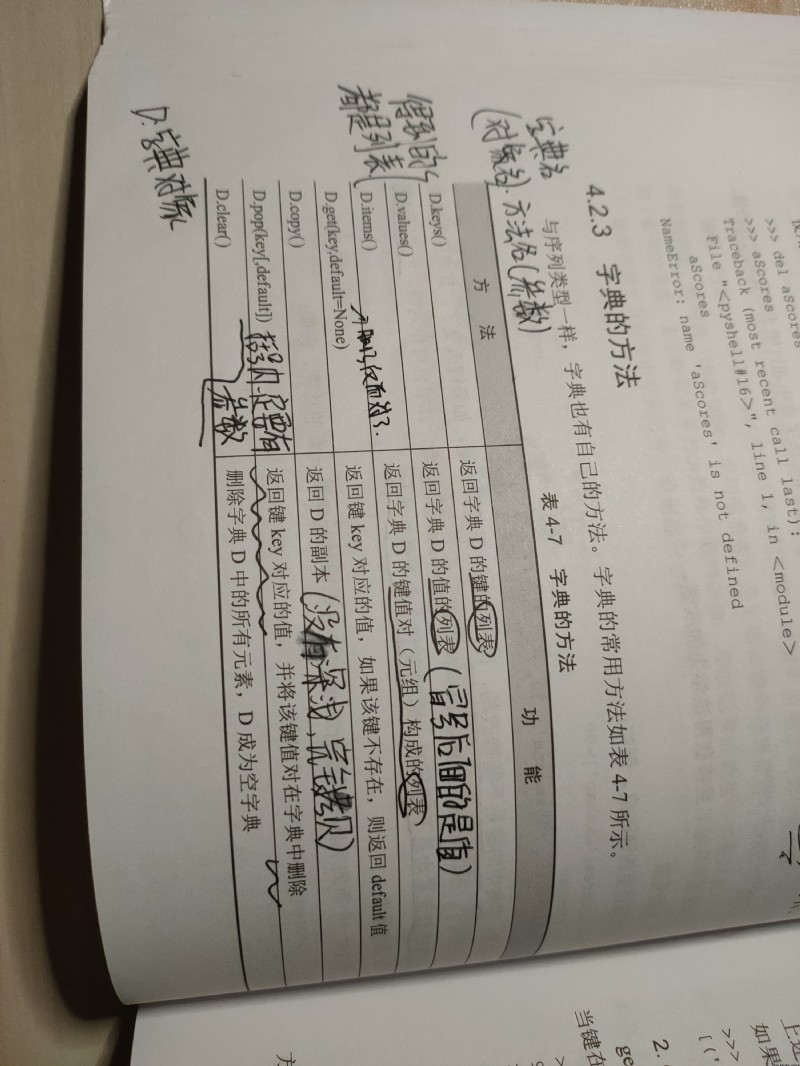 >>> del aScores
>>> aScores
Traceback (most recent call last):
File "<pyshell#16>", line 1, in <module>
aScores
NameError: name 'aScores' is not defined
4.2.3 字典的方法
与序列类型一样，字典也有自己的方法。字典的常用方法如表 4-7 所示。
字典名
(对象名).方法名(参数)
表 4-7 字典的方法
方 法 功 能
得到的
都是列表
D.keys() 返回字典 D 的键的列表
D.values() 返回字典 D 的值的列表 (冒号后面的是值)
D.items() 返回字典 D 的键值对（元组）构成的列表
D.get(key,default=None) 返回键 key 对应的值，如果该键不存在，则返回 default 值
D.copy() 返回 D 的副本 (没有深浅,完全拷贝)
D.pop(key[,default]) 返回键 key 对应的值，并将该键值对在字典中删除
括号内一定要有
参数
D.clear() 删除字典 D 中的所有元素，D 成为空字典
D.字典对象
上述
如果
>>>
[('
2.
ge
当键在
>
方